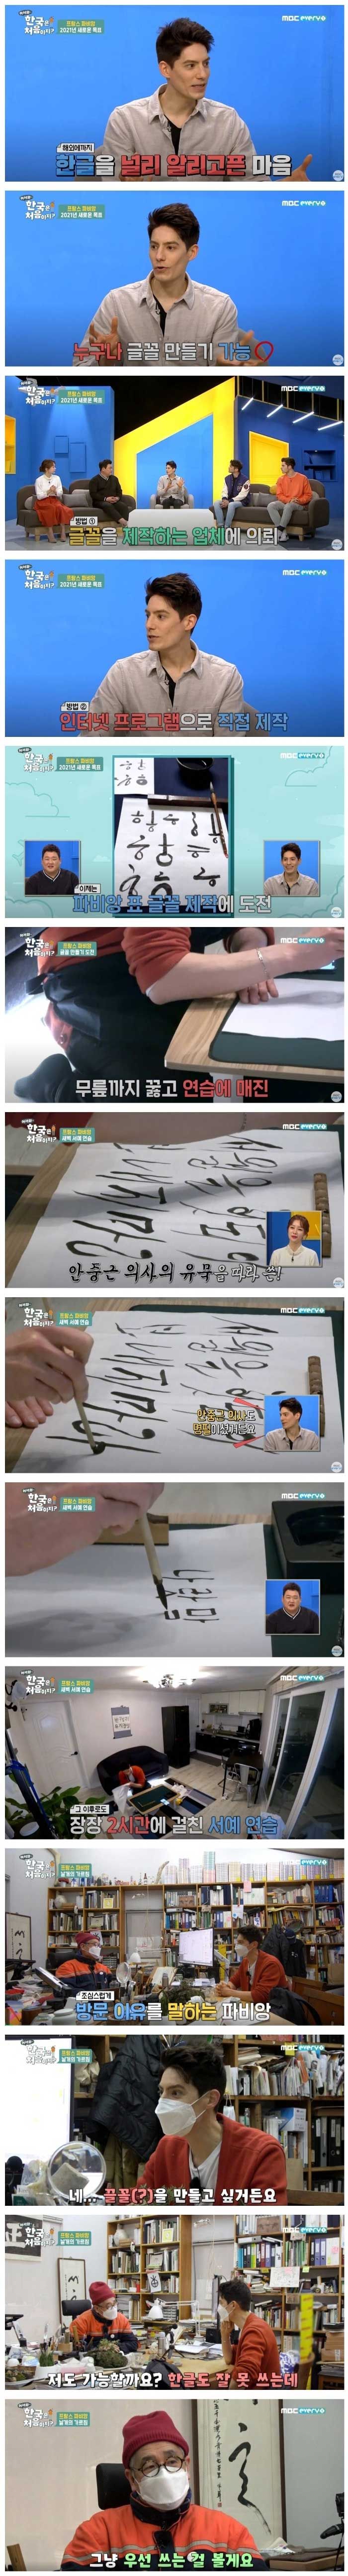 어서와~
한국은
처음이지?
프랑스 파비앙
2021년 새로운 목표
MBC every1
해외에까지
한글을 널리 알리고픈 마음
어서와~
한국은
처음이지?
프랑스 파비앙
2021년 새로운 목표
MBC every1
누구나 글꼴 만들기 가능
어서와~
한국은
처음이지?
프랑스 파비앙
2021년 새로운 목표
MBC every1
방법 ①
글꼴을 제작하는 업체에 의뢰
어서와~
한국은
처음이지?
프랑스 파비앙
2021년 새로운 목표
MBC every1
방법 ②
인터넷 프로그램으로 직접 제작
어서와~
한국은
처음이지?
프랑스 파비앙
2021년 새로운 목표
MBC every1
이제는
파비앙 표 글꼴 제작에 도전
어서와~
한국은
처음이지?
프랑스 파비앙
글꼴 만들기 도전
MBC every1
무릎까지 꿇고 연습에 매진
어서와~
한국은
처음이지?
프랑스 파비앙
새벽 서예 연습
MBC every1
안중근 의사의 유묵을 따라 쓴!
어서와~
한국은
처음이지?
프랑스 파비앙
새벽 서예 연습
MBC every1
안중근 의사도
명필이셨거든요
어서와~
한국은
처음이지?
프랑스 파비앙
새벽 서예 연습
MBC every1
어서와~
한국은
처음이지?
프랑스 파비앙
새벽 서예 연습
MBC every1
그 이후로도
장장 2시간에 걸친 서예 연습
어서와~
한국은
처음이지?
프랑스 파비앙
날개의 가르침
MBC every1
조심스럽게
방문 이유를 말하는 파비앙
어서와~
한국은
처음이지?
프랑스 파비앙
날개의 가르침
MBC every1
네... 끌꼴(?)을 만들고 싶거든요
어서와~
한국은
처음이지?
프랑스 파비앙
날개의 가르침
MBC every1
저도 가능할까요? 한글도 잘 못 쓰는데
어서와~
한국은
처음이지?
프랑스 파비앙
날개의 가르침
MBC every1
그냥 우선 쓰는 걸 볼게요